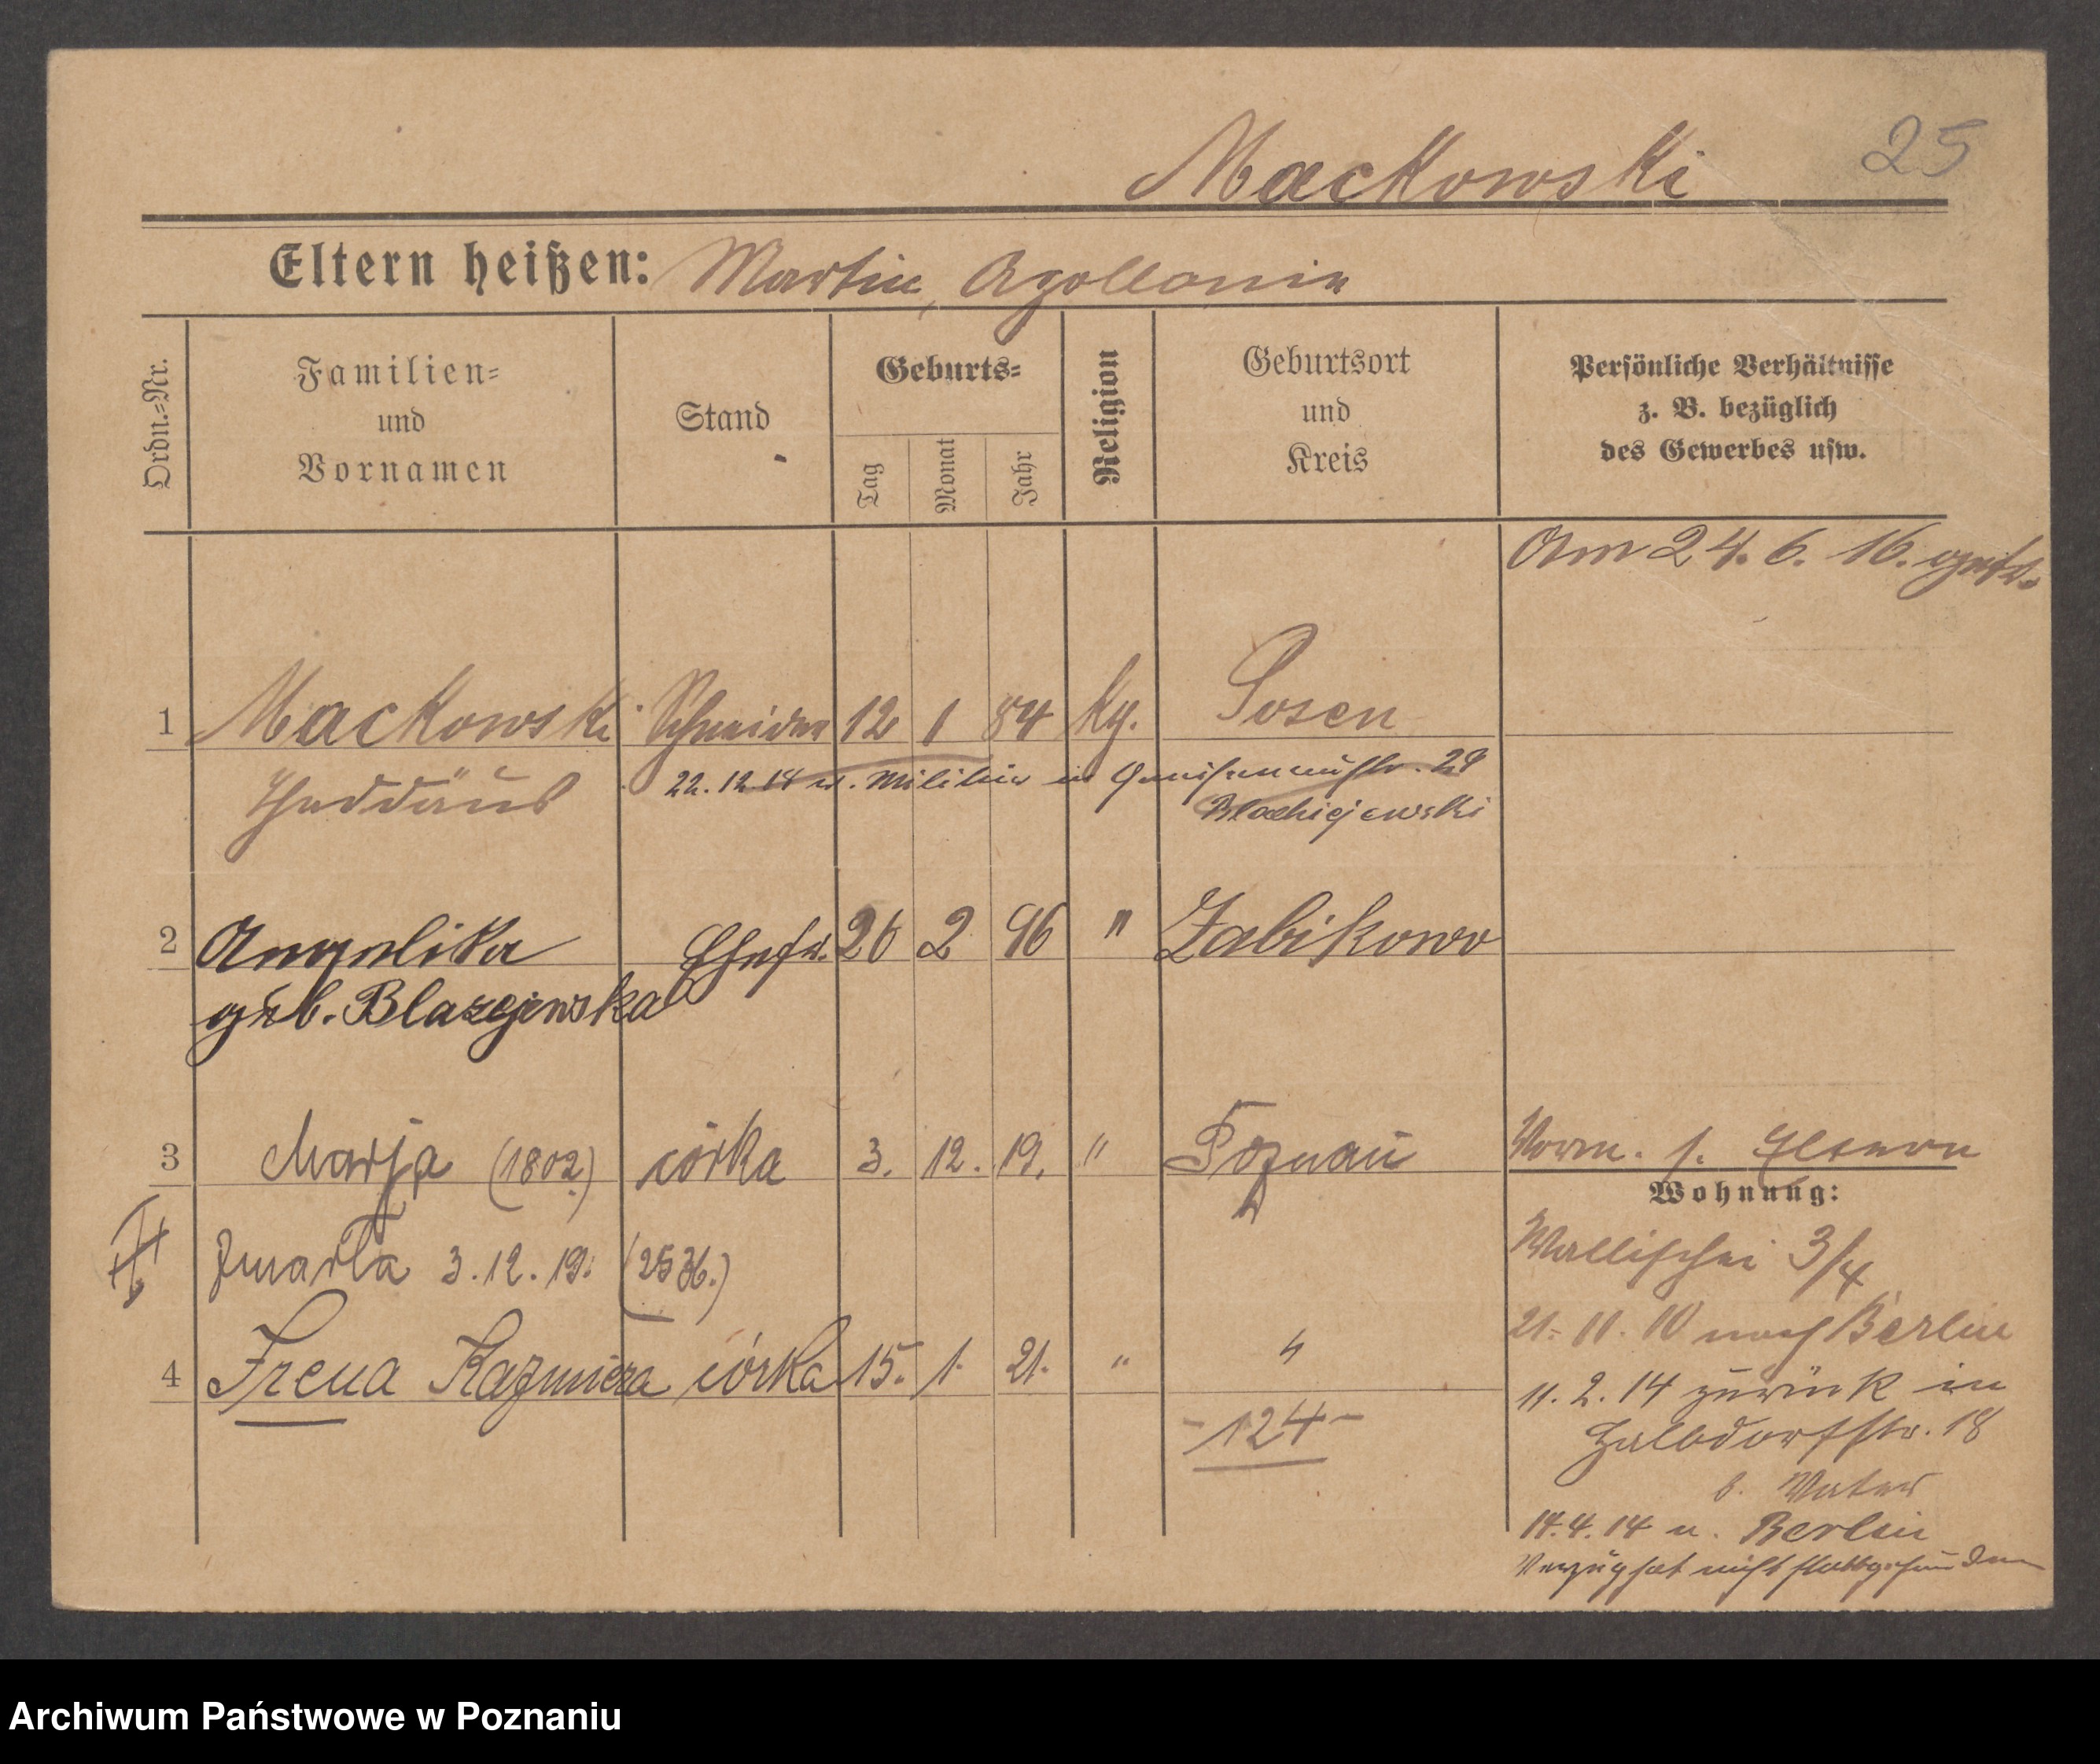 Mackowski 25
Eltern heißen: Martin, Apollonia
Ordn.=Nr.
Familien=
und
Vornamen
Stand
Geburts=
Tag
Monat
Jahr
Religion
Geburtsort
und
Kreis
Persönliche Verhältnisse
z. B. bezüglich
des Gewerbes usw.
Am 24. 6. 16.
1 Mackowski Schneider 12 1 84 kg. Posen
Thaddäus 22. 12. 18 v. Militär in Gneisenaustr. 29
2 Angelika Ehefr. 26 2 96 " Zabikowo
geb. Blazejewska
3 Marja (1802) córka 3. 12. 19. " Poznań Vorm. s. Eltern
Wohnung:
Zmarła 3. 12. 19. (2536.) Wallischei 3/4
21. 11. 10 nach Berlin
4 Irena Kazmiera córka 15. 1. 21. " "
11. 2. 14 zurück in
-124-
Halbdorfstr. 18
b. Vater
14. 4. 14 n. Berlin
Verzug hat nicht stattgefunden
Archiwum Państwowe w Poznaniu